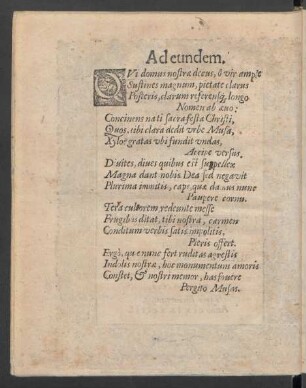 Ad eundem.
QVi domus nostræ decus, ô vir ample
Sustines magnum, pietate clarus
Posteris, clarum referensq; longo
Nomen ab auo:
Concinem nati sacra festa Christi,
Quos, tibi clara dedit vrbe Musa,
Xylos gratas vbi fundit vndas,
Arenæ versus.
Diuites, diues quibus est supellex
Magna dant nobis Dea sed negavit
Plurima inuitis, cape, quæ damus nunc
Paupere cornu.
Terra cultorem redeunte messe
Frugibus ditat, tibi nostra, carmen
Conditum verbis satis impolitis,
Pieris offert.
Ergò, quæ nunc fert rudit as agrestis
Indolis nostræ, hoc monumentum amoris
Constet, & nostri memor, has fouere
Pergito Musas.